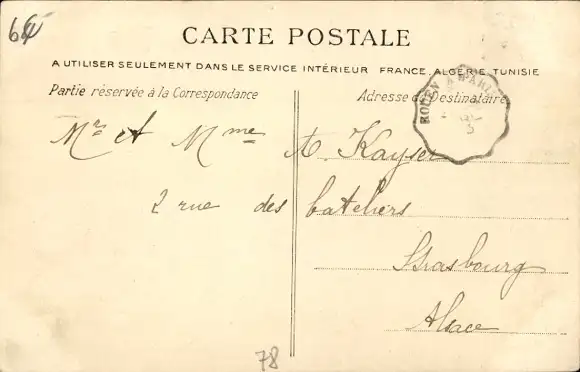 64
CARTE POSTALE
A UTILISER SEULEMENT DANS LE SERVICE INTÉRIEUR FRANCE, ALGÉRIE, TUNISIE
Partie réservée à la Correspondance
Adresse du Destinataire
ROUEN A PARIS
Mr et Mme A. Kayser
2 rue des bateliers
Strasbourg
Alsace
78